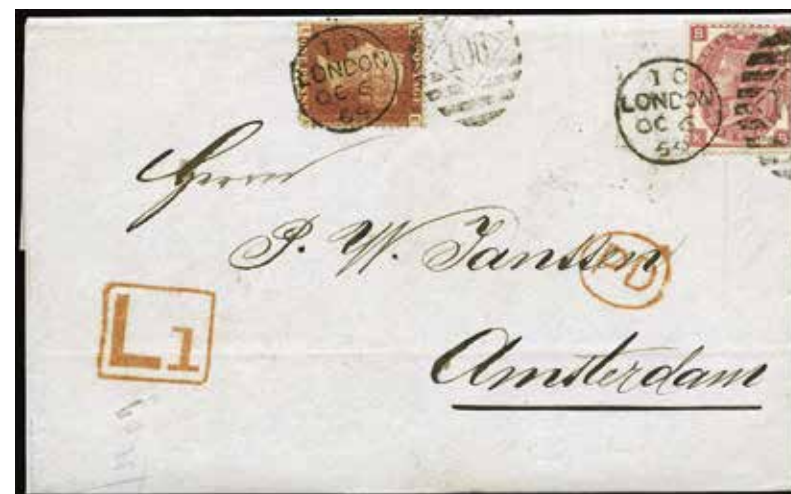 10
LONDON
OC 5
69
10
LONDON
OC 5
69
100
Herrn
P. W. Janssen
PD
L1
Amsterdam